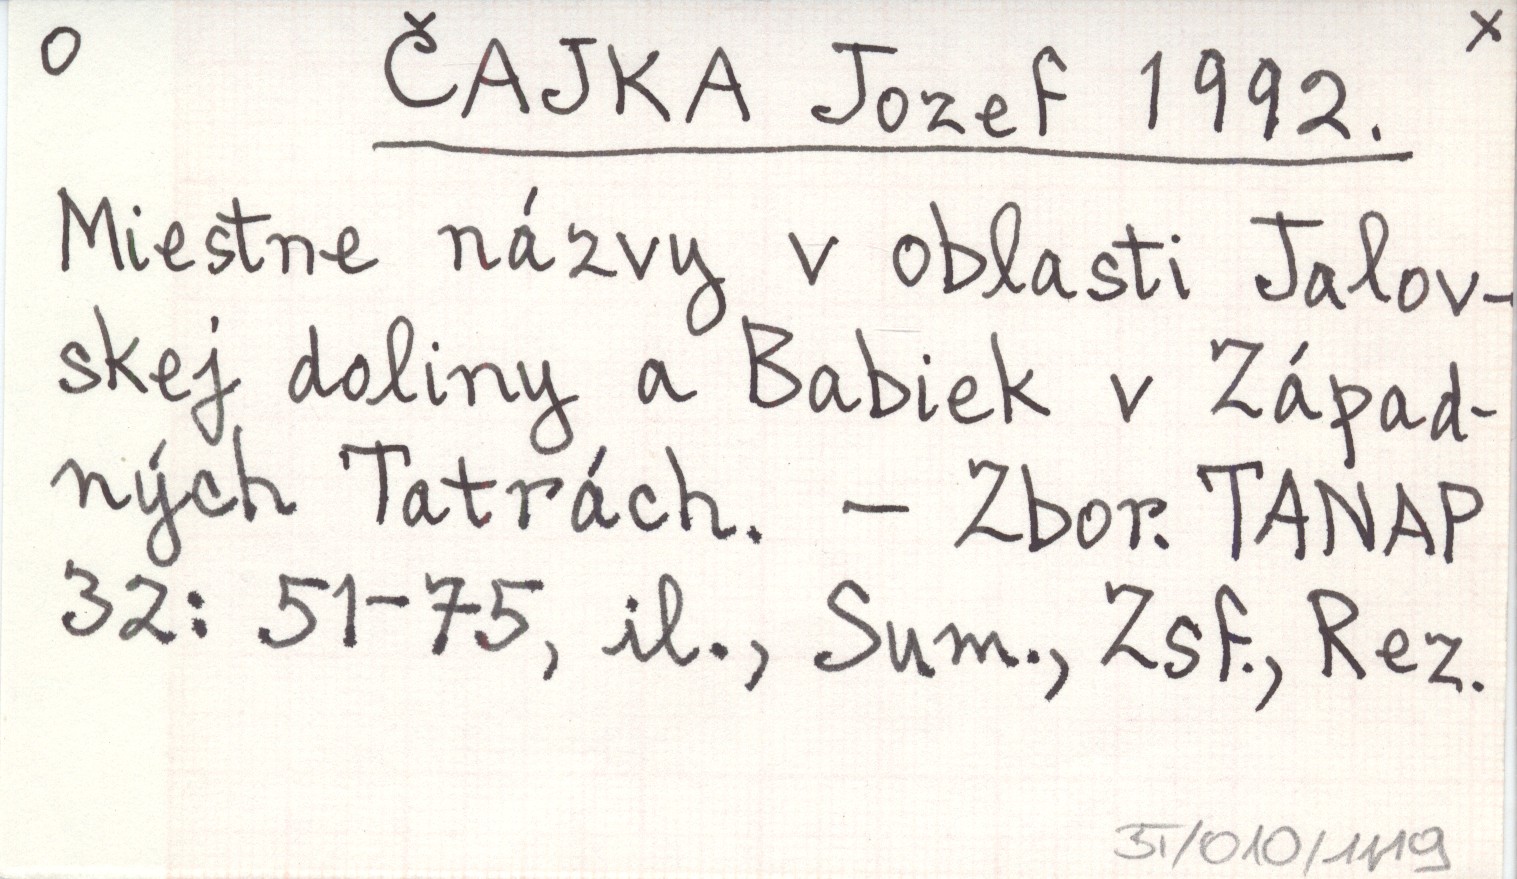 O ČAJKA Jozef 1992. x
Miestne názvy v oblasti Jalov-
skej doliny a Babiek v Západ-
ných Tatrách. – Zbor. TANAP
32: 51–75, il., Sum., Zsf., Rez.